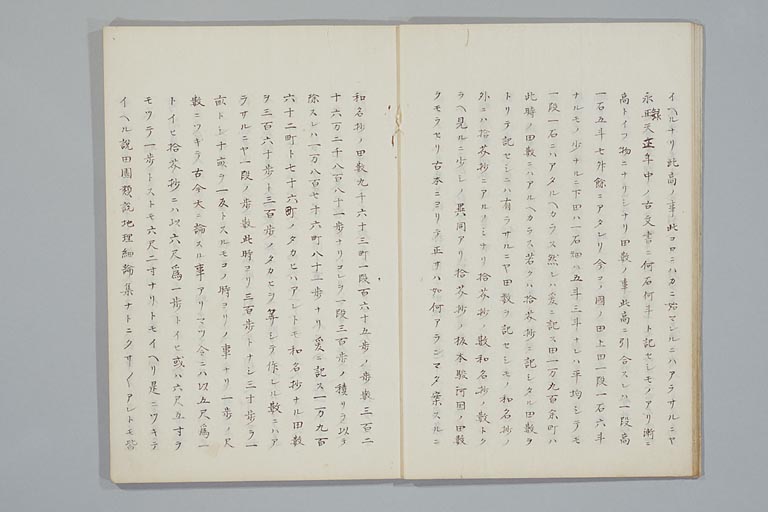 イヘルナリ此高ノ事此コロニハカニ始マレルニハアラサルニヤ
永正天正年中ノ古文書ニ何石何斗ト記セシモノアリ漸ニ
高トイフ物ニナリシナリ田数ノ事此高ニ引合スレハ一段高
一石五斗七升餘ニアタレリ今コノ国ノ田上田一段一石六斗
ナルモノ少ナルニ下田ハ一石畑ハ五斗三斗ナレハ平均シテモ
一段一石ニハアタルヘカラス然レハ爰ニ記ス田一万九百余町ハ
此時ノ田数ニハアルヘカラス若クハ拾芥抄ニ記シタル田数ヲ
トリテ記セシニハ有ラサルニヤ田数ヲ記セシモノ和名抄ノ
外ニハ拾芥抄ニアルノミナリ拾芥抄ノ数和名抄ノ数トク
ラヘ見ルニ少シノ異同アリ拾芥抄ノ板本駿河国ノ田数
クモラセリ古本ニヨリテ正サハ如何アランマタ案スルニ
和名抄ノ田数九千六十三町一段百六十五歩ノ歩数三百二
十六万三千八百八十一歩ナリコレヲ一段三百歩ノ積リヲ以テ
除スレハ一万八百七十六町八十一歩ナリ爰ニ記ス一万九百
六十二町ト七十六町ノタカヒハアレトモ和名抄ナル田数
ヲ三百六十歩ト三百歩ノタカヒヲ算シテ作レル数ニハア
ラサルニヤ一段ノ歩数此時ヨリ三百歩トナシ三十歩ヲ一
畝トシ十畝ヲ一反トスルモコノ時ヨリノ事ナリ一歩ノ尺
数ニツキテ古今大ニ論スル事アリニツ令ニハ以五尺爲一
トイヒ拾芥抄ニハ以六尺爲一歩トイヒ或ハ六尺五寸ヲ
モツテ一歩トストモ六尺二寸ナリトモイヘリ是ニツキテ
イヘル説田園類説地理細論集ナトニクサ〳〵アレトモ皆